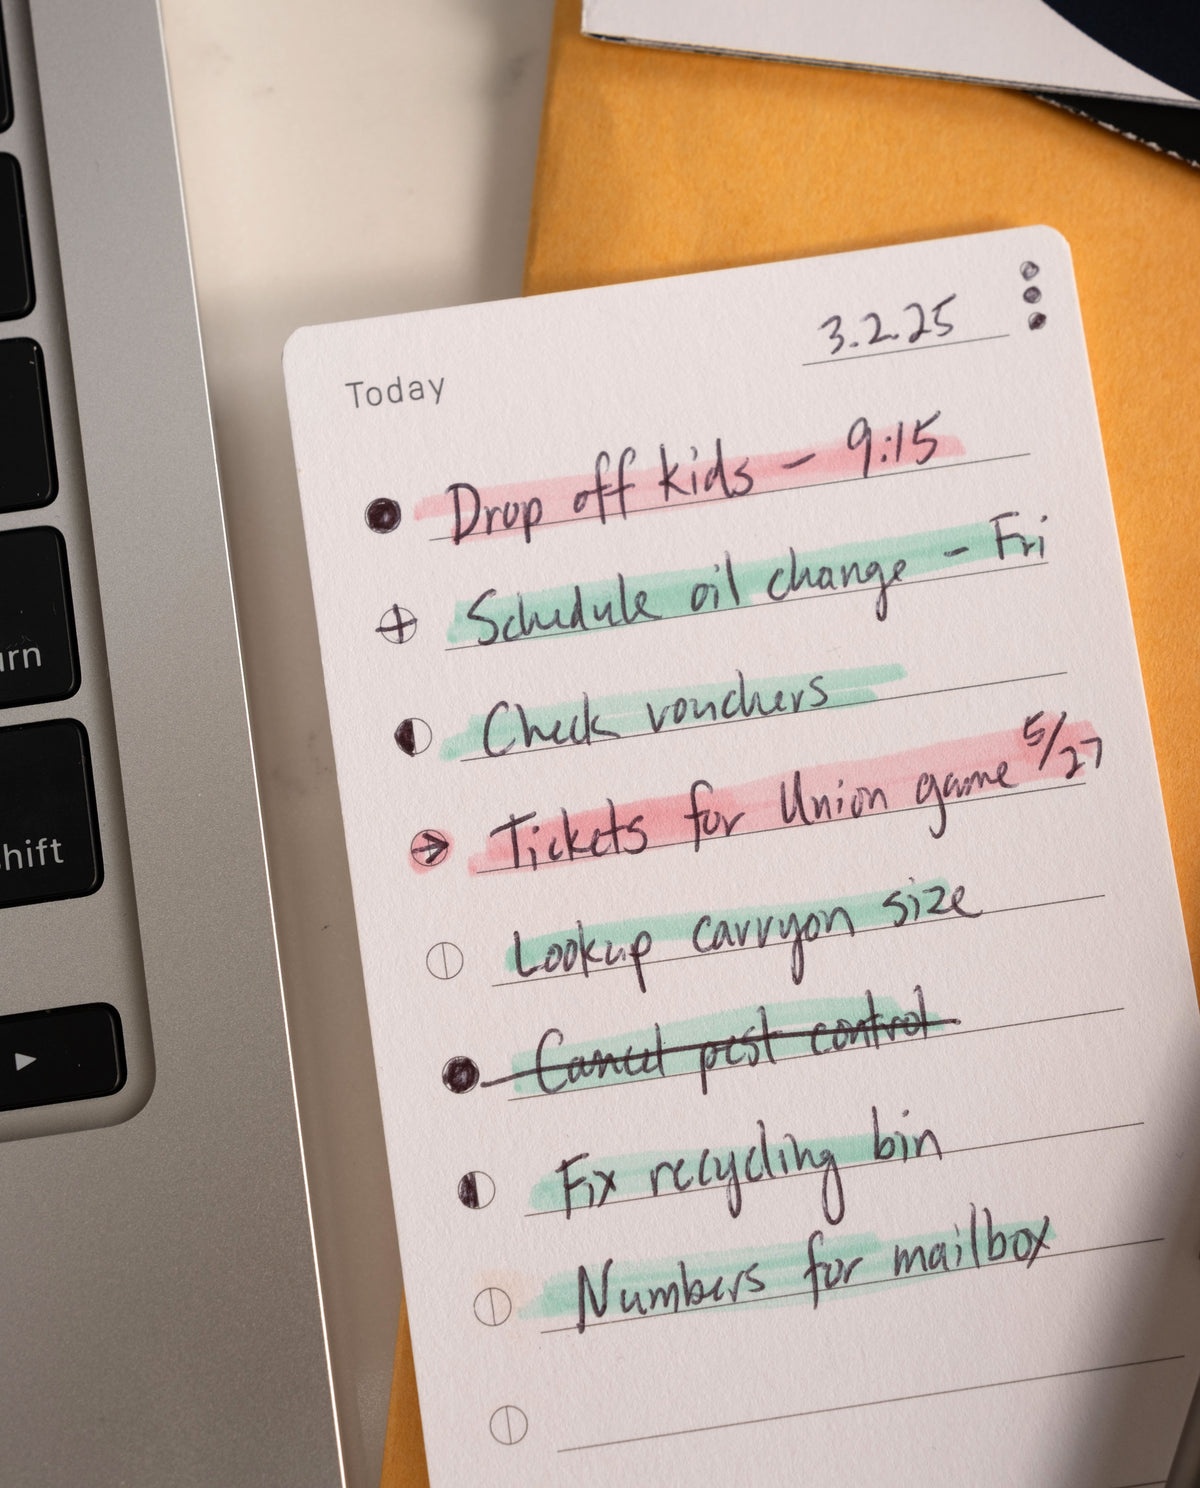 Today
3.2.25
Drop off kids - 9:15
Schedule oil change - Fri
Check vouchers
Tickets for Union game 5/27
Lookup carryon size
Cancel pest control
Fix recycling bin
Numbers for mailbox
urn
hift